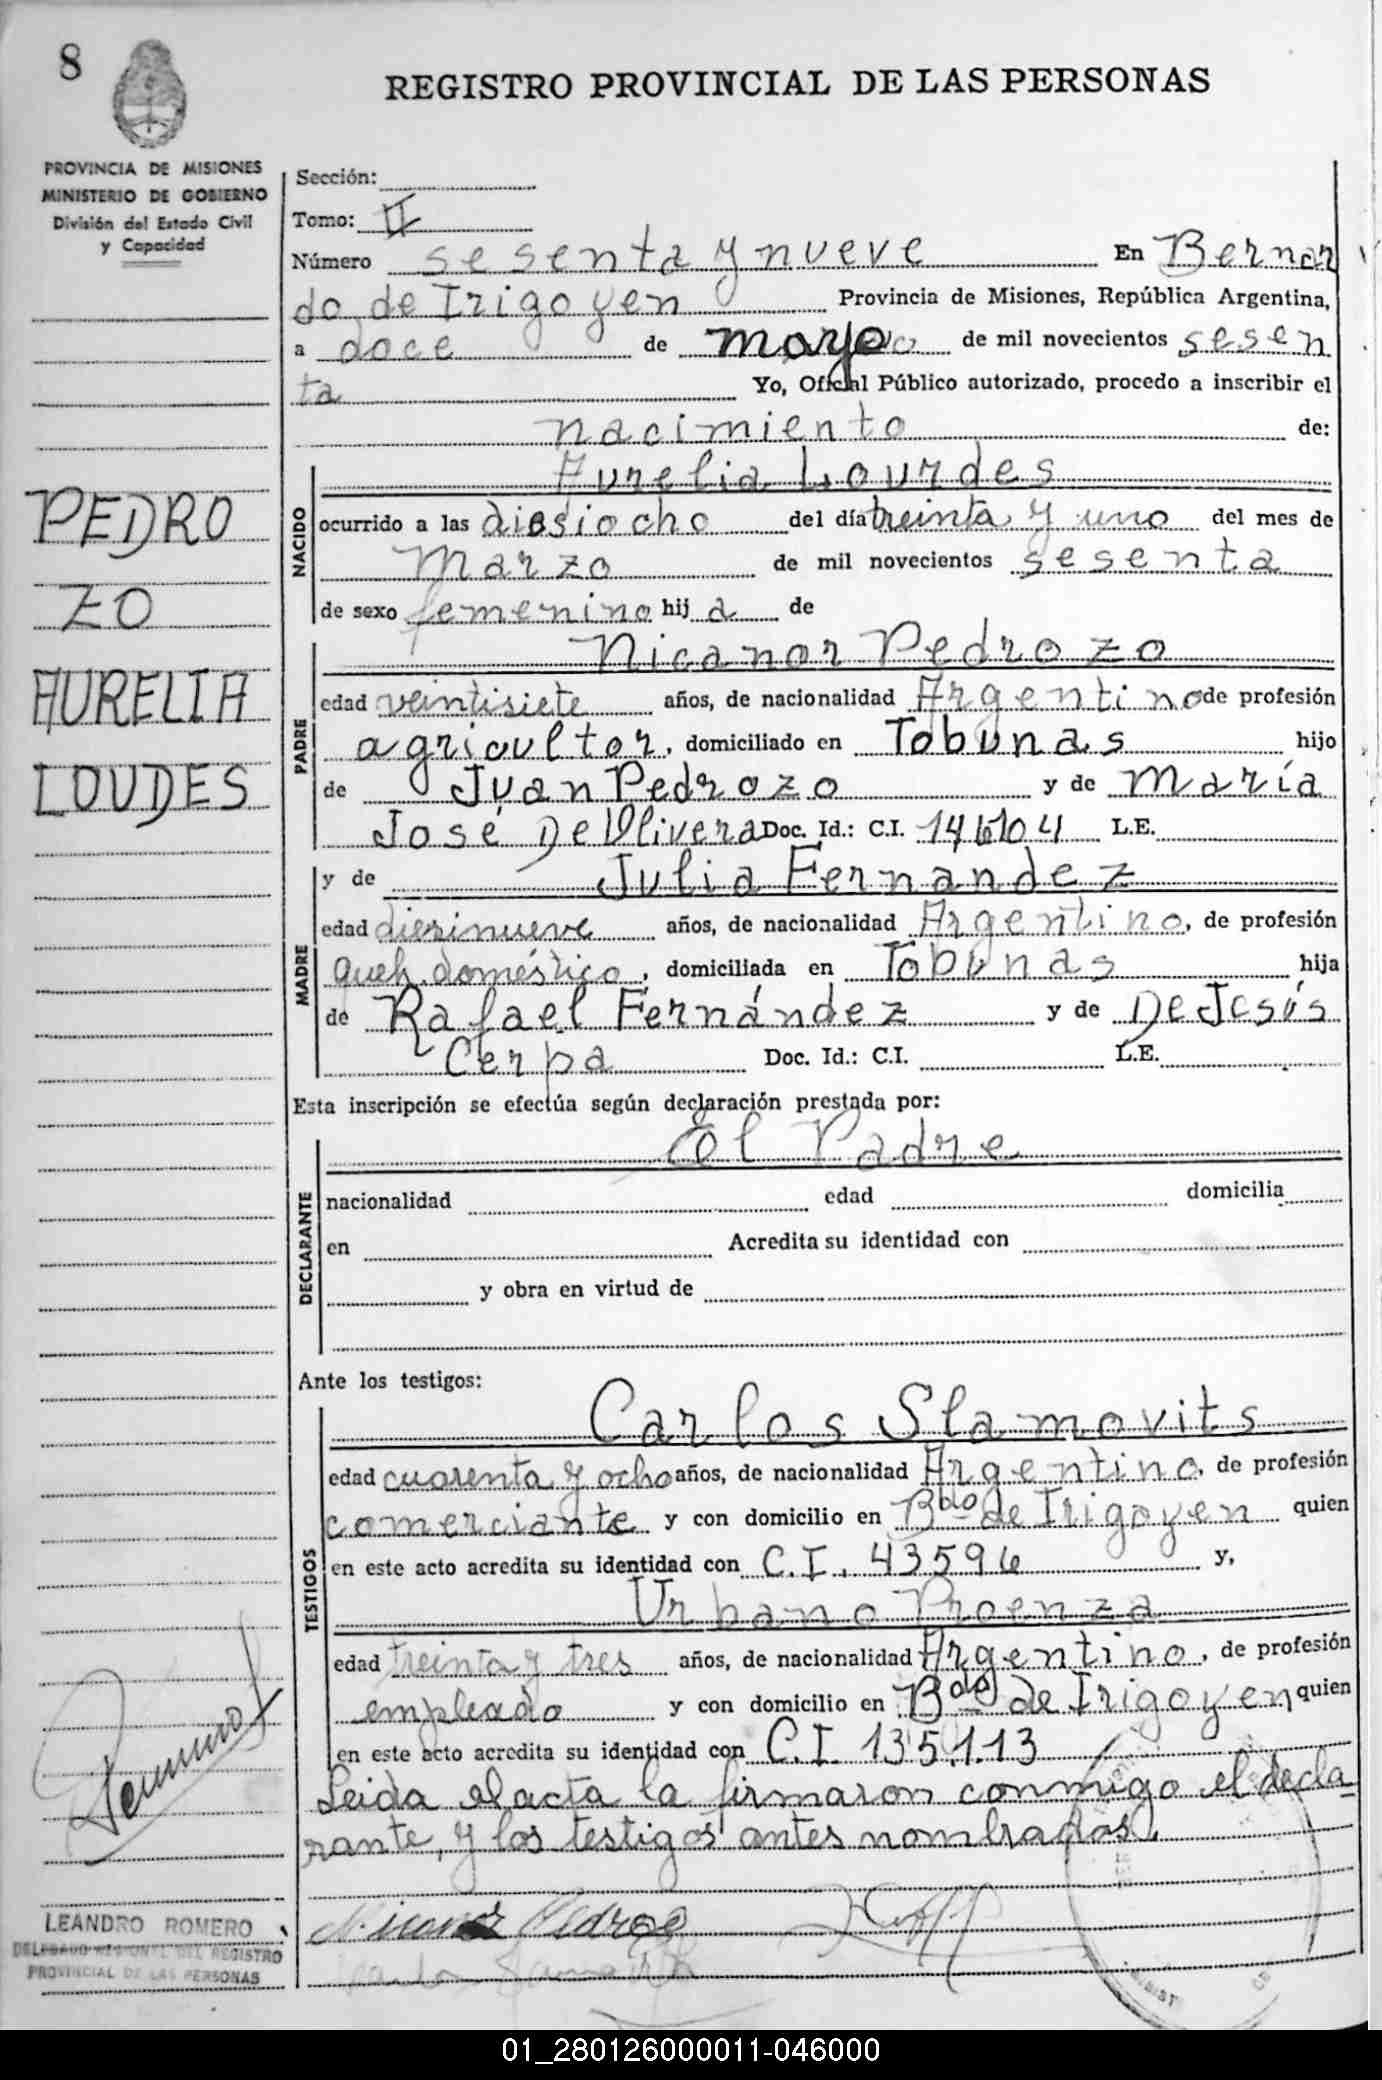 8
REGISTRO PROVINCIAL DE LAS PERSONAS
PROVINCIA DE MISIONES
MINISTERIO DE GOBIERNO
División del Estado Civil
y Capacidad
PEDRO
ZO
AURELIA
LOUDES
LEANDRO ROMERO
DELEGADO REGIONAL DEL REGISTRO
PROVINCIAL DE LAS PERSONAS
Sección:
Tomo: II
Número sesenta y nueve En Bernar
do de Irigoyen Provincia de Misiones, República Argentina,
a doce de mayo de mil novecientos sesen
ta Yo, Oficial Público autorizado, procedo a inscribir el
nacimiento de:
Aurelia Lourdes
NACIDO
ocurrido a las diesiocho del día treinta y uno del mes de
Marzo de mil novecientos sesenta
de sexo femenino hij a de
Nicanor Pedrozo
PADRE
edad veintisiete años, de nacionalidad Argentino de profesión
agricultor, domiciliado en Tobunas hijo
de Juan Pedrozo y de María
José De Olivera Doc. Id.: C.I. 146104 L.E.
y de Julia Fernandez
MADRE
edad diezinueve años, de nacionalidad Argentino, de profesión
queh. doméstico, domiciliada en Tobunas hija
de Rafael Fernández y de De Jesús
Cerpa Doc. Id.: C.I. L.E.
Esta inscripción se efectúa según declaración prestada por:
El Padre
DECLARANTE
nacionalidad edad domicilia
en Acredita su identidad con
y obra en virtud de
Ante los testigos:
Carlos Slamovits
TESTIGOS
edad cuarenta y ocho años, de nacionalidad Argentino, de profesión
comerciante y con domicilio en Bdo de Irigoyen quien
en este acto acredita su identidad con C.I. 43596 y,
Urbano Proenza
edad treinta y tres años, de nacionalidad Argentino, de profesión
empleado y con domicilio en Bdo de Irigoyen quien
en este acto acredita su identidad con C.I. 135.113
Leida el acta la firmaron conmigo el decla
rante, y los testigos antes nombrados.
Nicanor Pedrozo
01_280126000011-046000